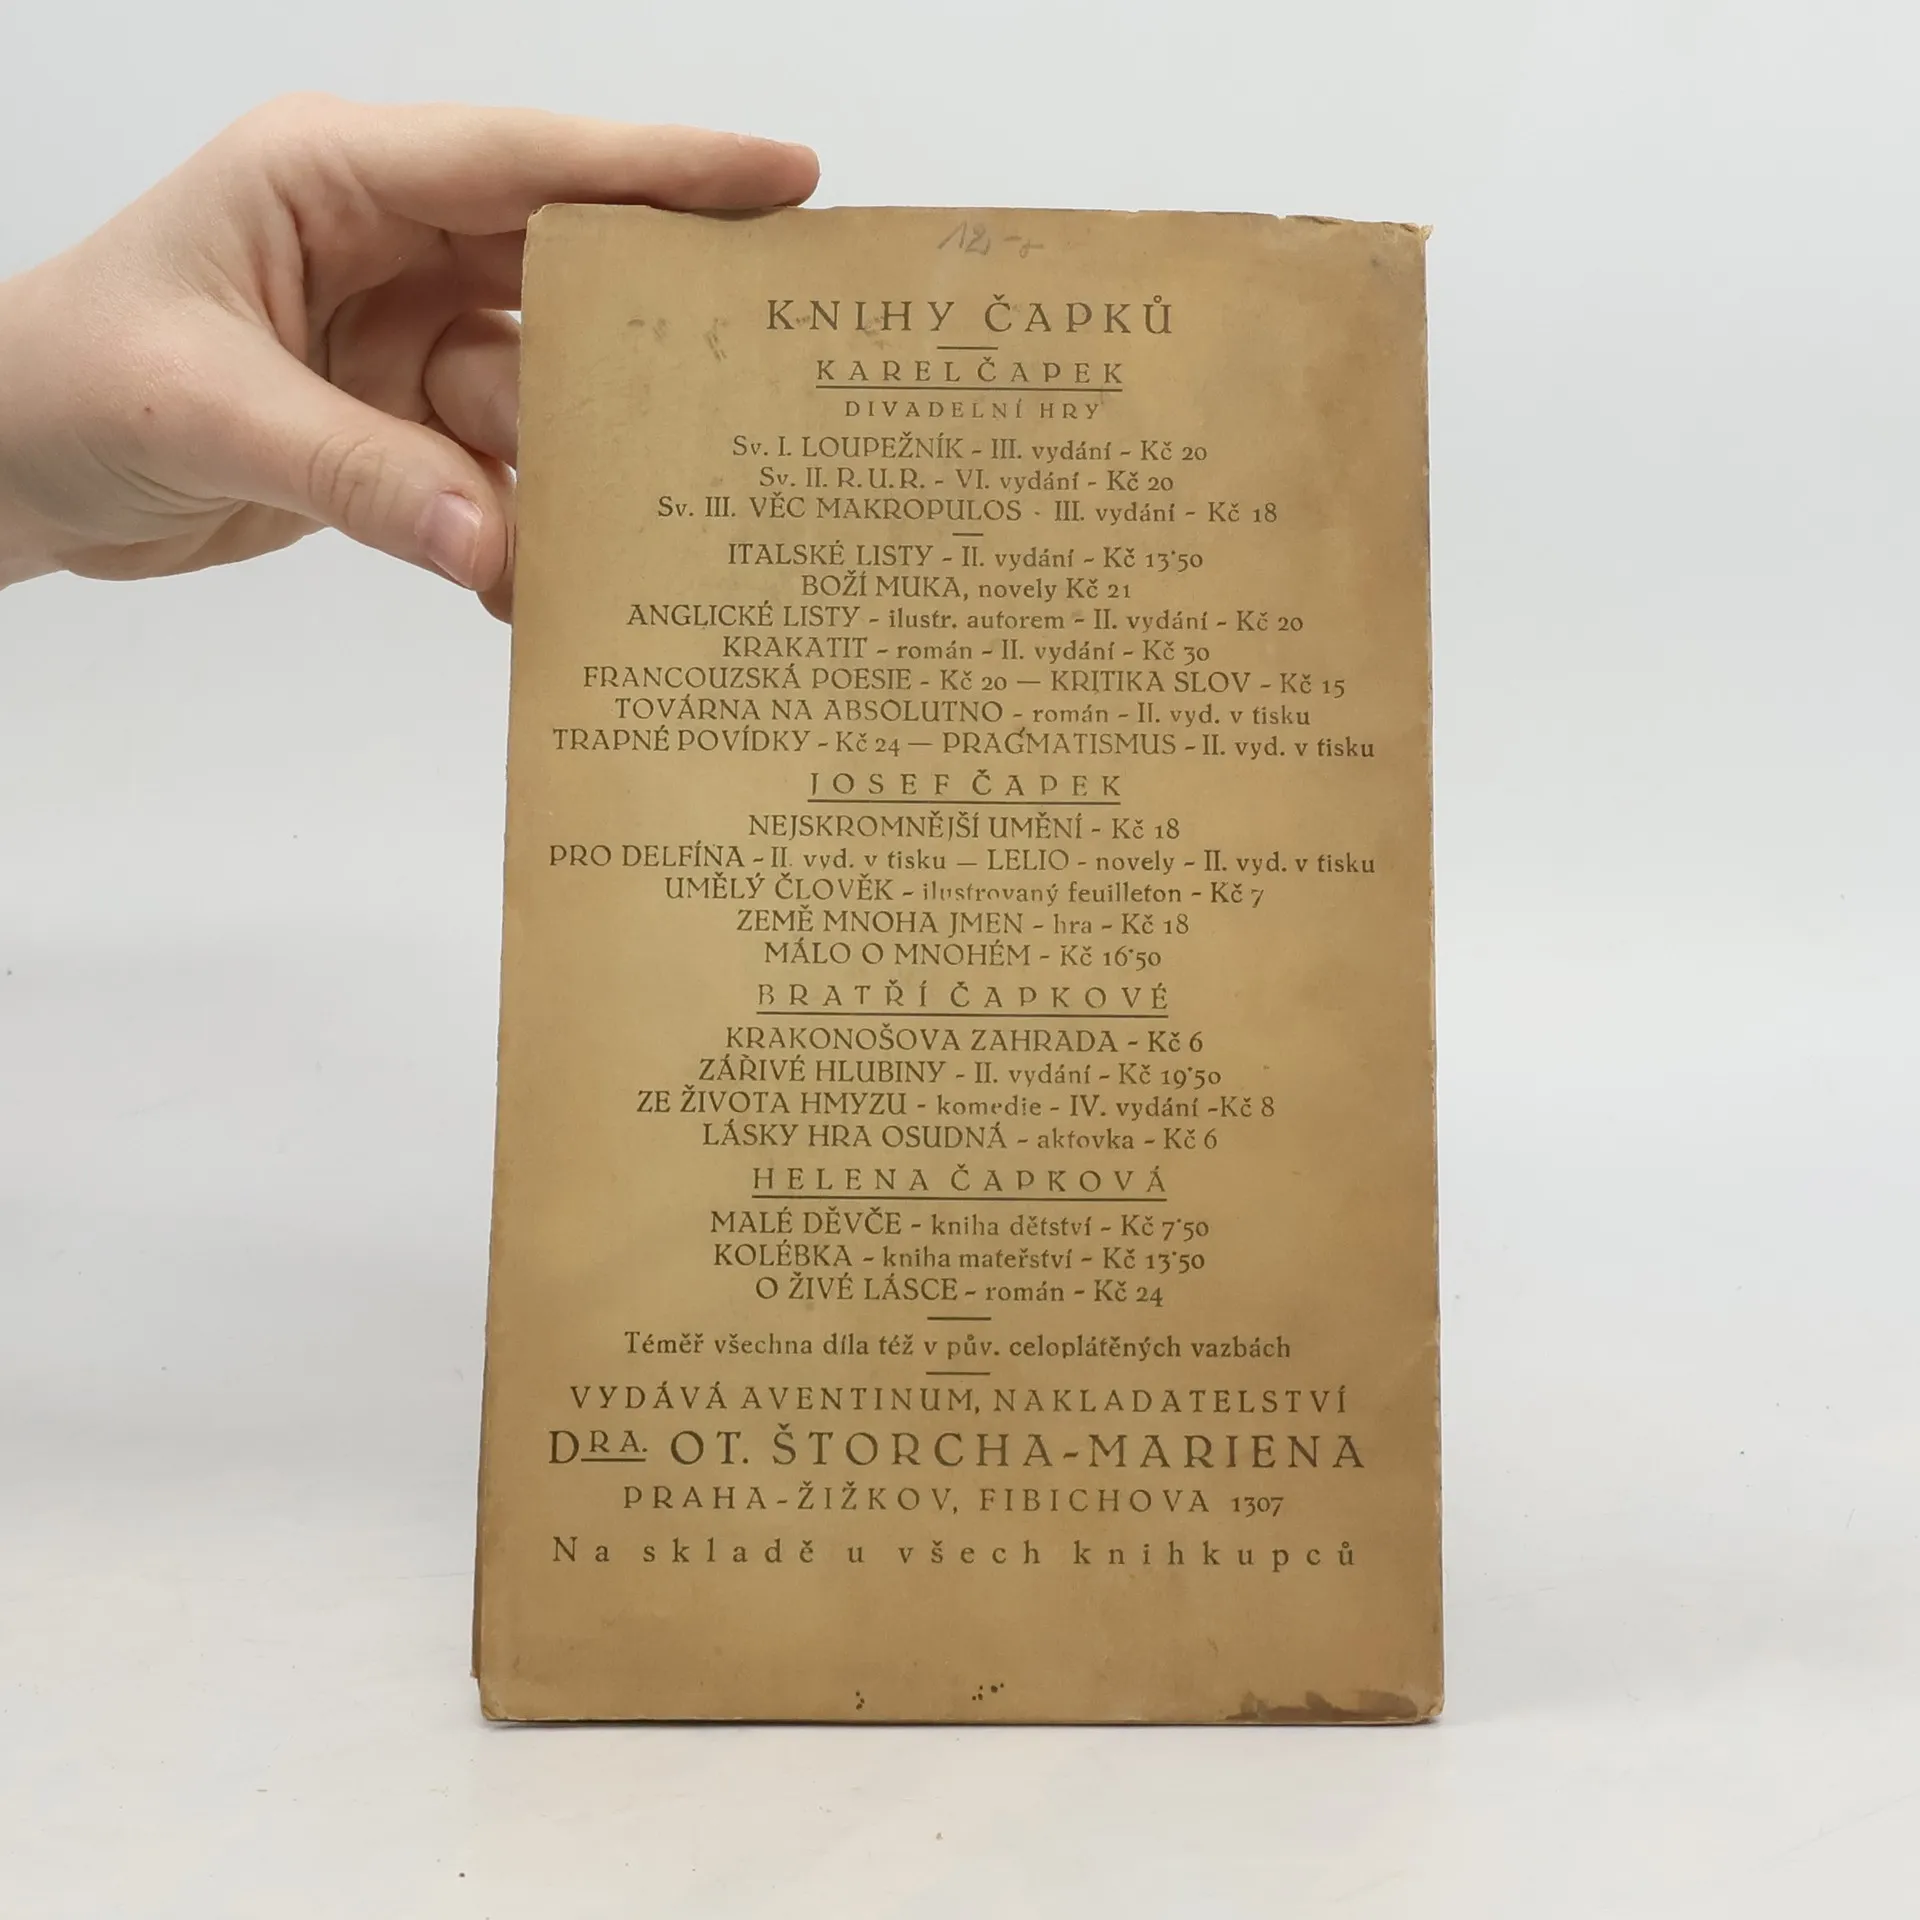 12,-
KNIHY ČAPKŮ
KAREL ČAPEK
DIVADELNÍ HRY
Sv. I. LOUPEŽNÍK - III. vydání - Kč 20
Sv. II. R. U. R. - VI. vydání - Kč 20
Sv. III. VĚC MAKROPULOS - III. vydání - Kč 18
ITALSKÉ LISTY - II. vydání - Kč 13·50
BOŽÍ MUKA, novely Kč 21
ANGLICKÉ LISTY - ilustr. autorem - II. vydání - Kč 20
KRAKATIT - román - II. vydání - Kč 30
FRANCOUZSKÁ POESIE - Kč 20 — KRITIKA SLOV - Kč 15
TOVÁRNA NA ABSOLUTNO - román - II. vyd. v tisku
TRAPNÉ POVÍDKY - Kč 24 — PRAGMATISMUS - II. vyd. v tisku
JOSEF ČAPEK
NEJSKROMNĚJŠÍ UMĚNÍ - Kč 18
PRO DELFÍNA - II. vyd. v tisku — LELIO - novely - II. vyd. v tisku
UMĚLÝ ČLOVĚK - ilustrovaný feuilleton - Kč 7
ZEMĚ MNOHA JMEN - hra - Kč 18
MÁLO O MNOHÉM - Kč 16·50
BRATŘÍ ČAPKOVÉ
KRAKONOŠOVA ZAHRADA - Kč 6
ZÁŘIVÉ HLUBINY - II. vydání - Kč 19·50
ZE ŽIVOTA HMYZU - komedie - IV. vydání -Kč 8
LÁSKY HRA OSUDNÁ - aktovka - Kč 6
HELENA ČAPKOVÁ
MALÉ DĚVČE - kniha dětství - Kč 7·50
KOLÉBKA - kniha mateřství - Kč 13·50
O ŽIVÉ LÁSCE - román - Kč 24
Téměř všechna díla též v pův. celoplátěných vazbách
VYDÁVÁ AVENTINUM, NAKLADATELSTVÍ
DRA. OT. ŠTORCHA-MARIENA
PRAHA-ŽIŽKOV, FIBICHOVA 1307
Na skladě u všech knihkupců